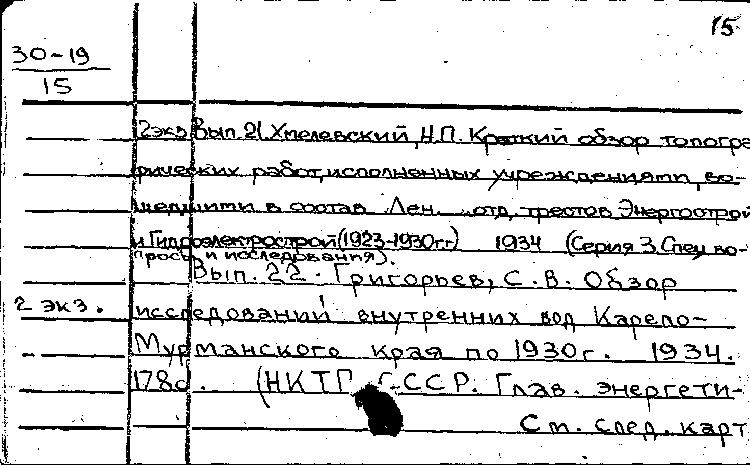 15
30-19
15
2экз Вып. 21 Хмелевский, Н.П. Краткий обзор топогра
фических работ, исполненных учреждениями, во-
шедшими в состав Лен. отд. трестов Энергострой
и Гидроэлектрострой (1923-1930гг) 1934 (Серия 3. Спец. во-
просы и исследования).
Вып. 22. Григорьев, С.В. Обзор
2 экз. исследований внутренних вод Карело-
Мурманского края по 1930г. 1934.
178с. (НКТП СССР. Глав. энергети-
См. след. карт